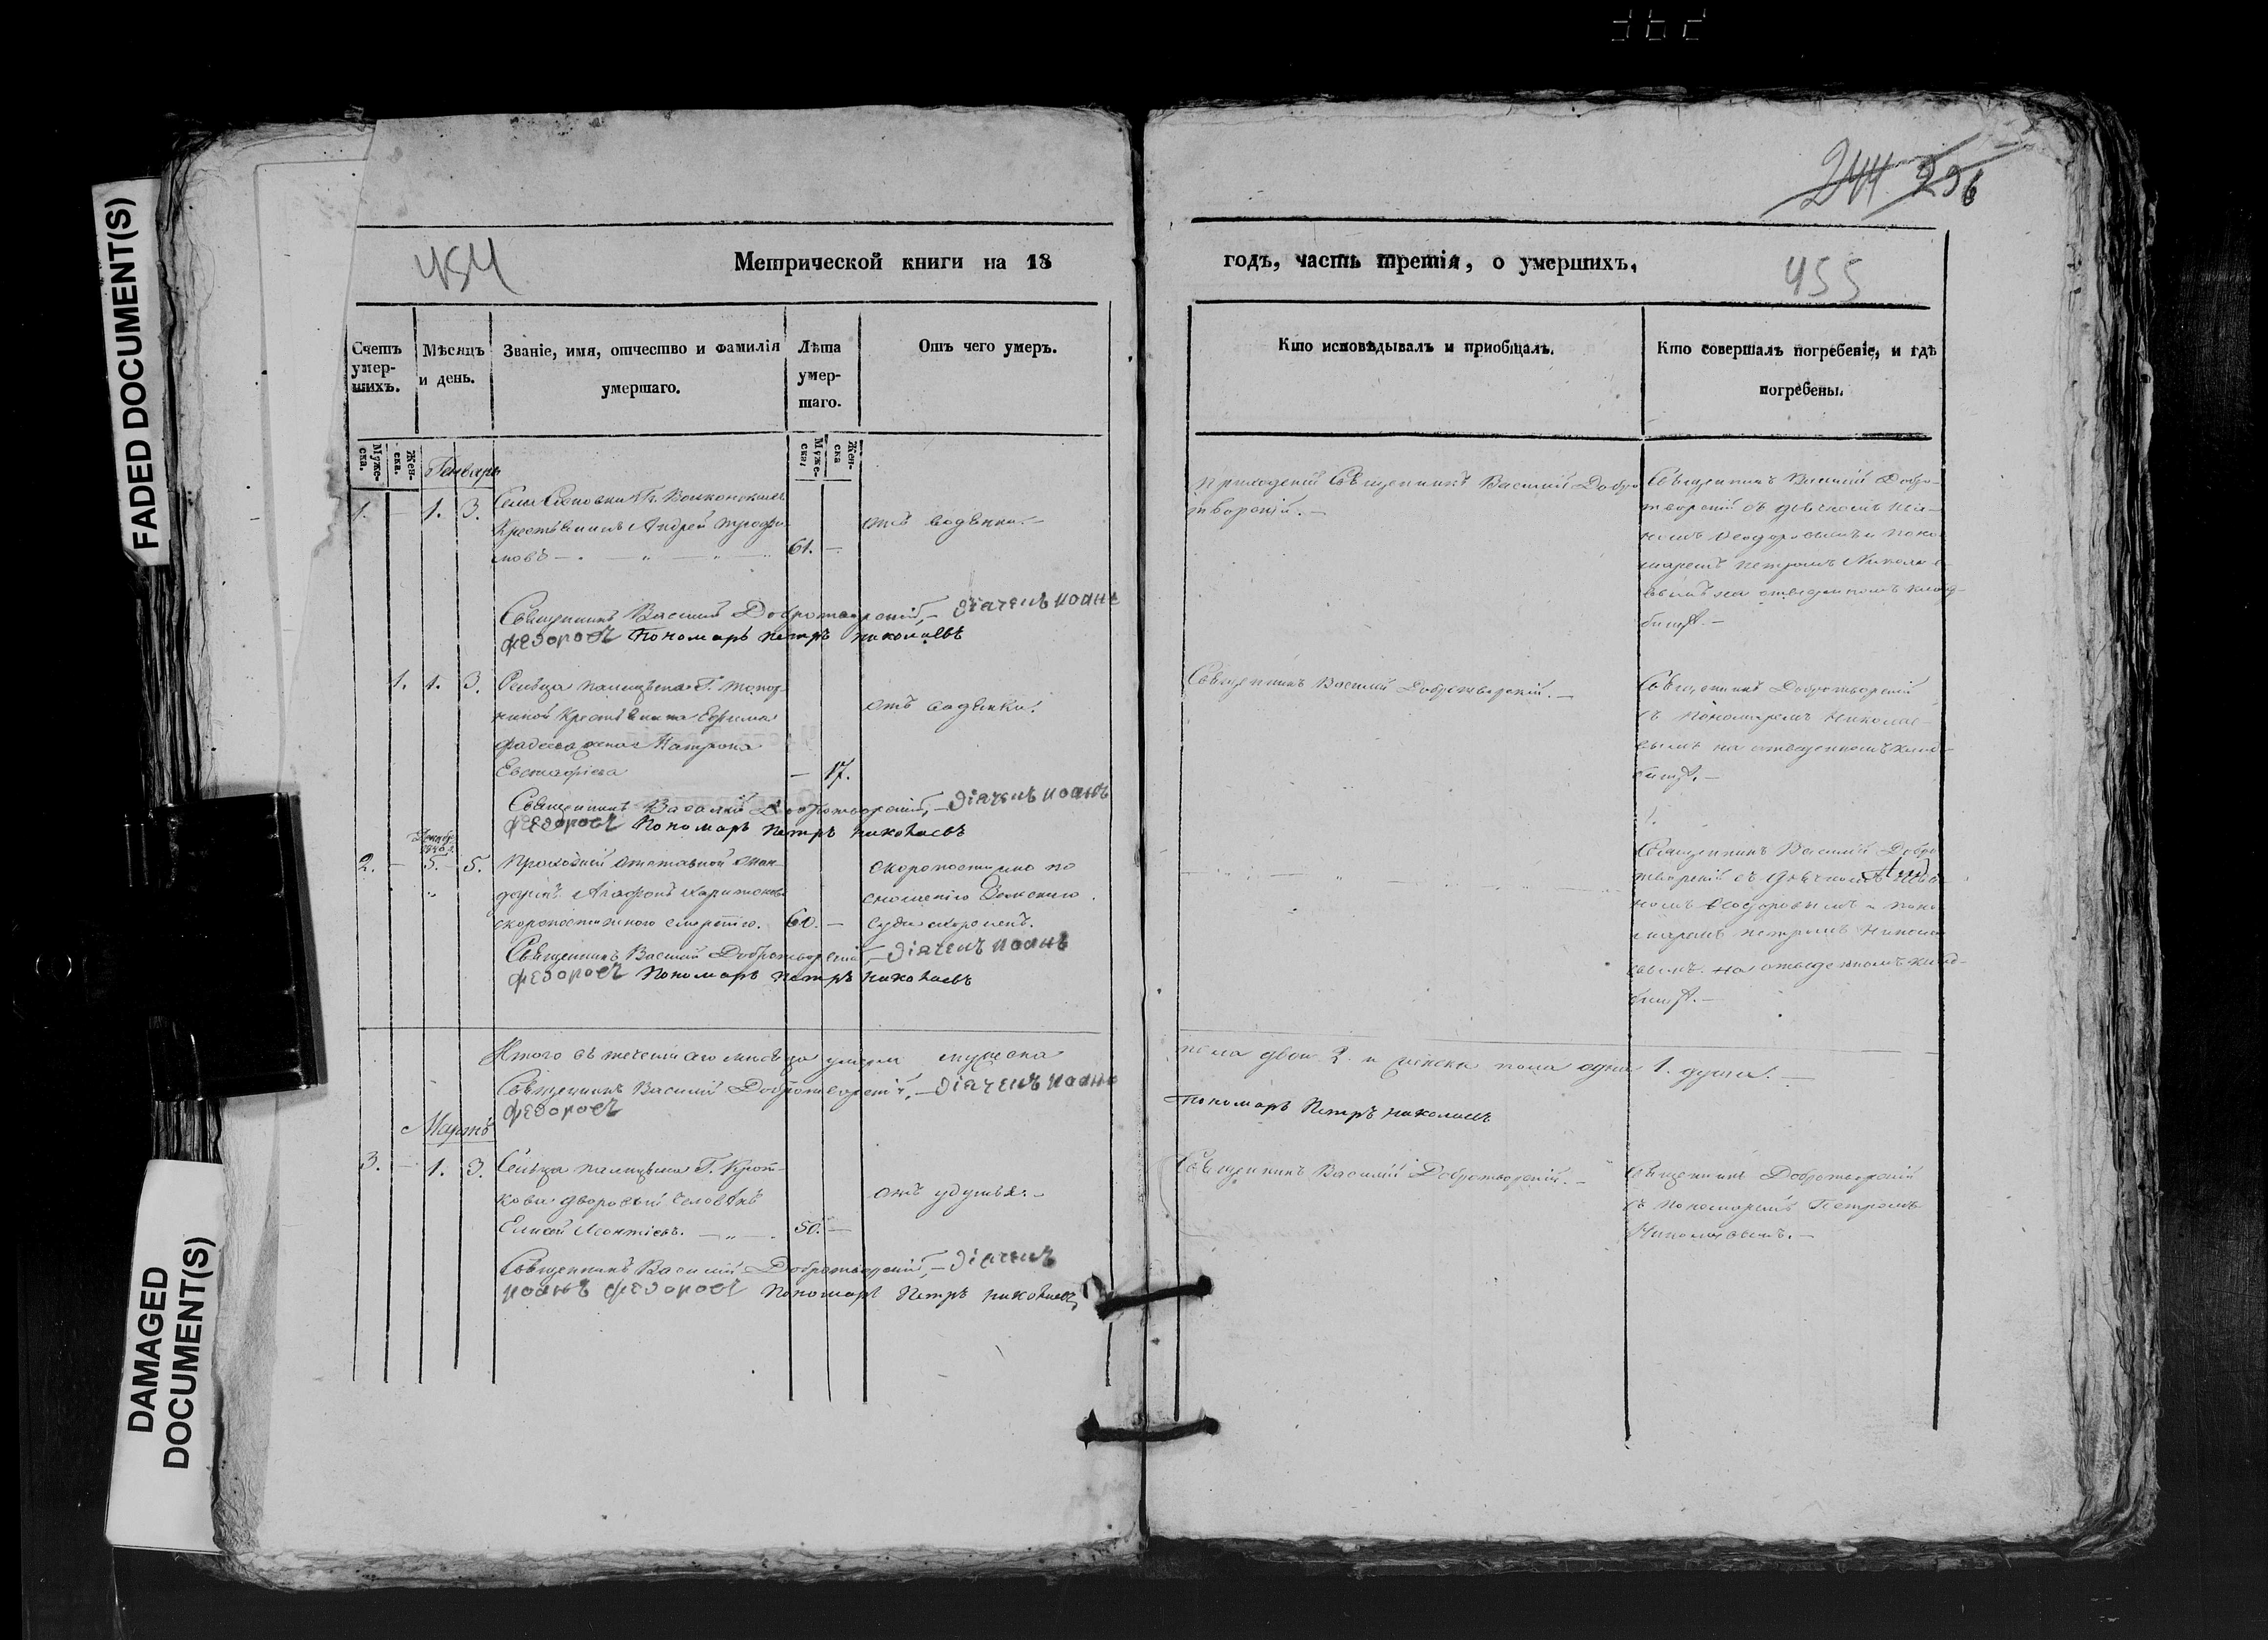 FADED DOCUMENT(S)
DAMAGED
DOCUMENT(S)
244 296
454
Метрической книги на 18
годъ, часть третія, о умершихъ,
455
Счетъ
умер-
шихъ.
Мѣсяцъ
и день.
Званіе, имя, отчество и фамилія
умершаго.
Лѣта
умер-
шаго.
Отъ чего умеръ.
Кто исповѣдывалъ и приобщалъ.
Кто совершалъ погребеніе, и гдѣ
погребены.
Муже-
ска.
Жен-
ска.
Муже-
ска.
Жен-
ска
Генварь
1. – 1. 3.
Крестьянинъ Андрей Трофи-
мовъ 61. –
отъ водянки. –
Приходскій Священникъ Василій Добро
творскій. –
Священникъ Василій Добро-
творскій съ дьячкомъ Иоан-
номъ Феодоровымъ и поно
маремъ Петромъ Николае
вымъ на отведенномъ клад-
бищѣ. –
Священникъ Василій Добротворскій, – діачекъ иоаннъ
федоровъ Пономарь петръ николаевъ
1. 1. 3.
Крестьянина Ефима
жена Матрона
Евстафіева – 17.
отъ водянки.
Священникъ Василій Добротворскій. –
Священникъ Добротворскій
съ Пономаремъ Николае-
вымъ на отведенномъ клад-
бищѣ. –
Священникъ Василій Добротворскій, – діачекъ иоаннъ
федоровъ Пономарь петръ николаевъ
2. – 5. – 5.
скоропостижною смертію. 60. –
скоропостижно по
сношенію Земскаго
суда
Священникъ Василій Добро
творскій съ дьячкомъ
номъ Феодоровымъ и поно
маремъ петромъ Николае
вымъ на отведенномъ клад-
бищѣ. –
Священникъ Василій Добротворскій, – діачекъ иоаннъ
федоровъ Пономарь петръ николаевъ
Итого въ теченіи сего мѣсяца умерли мужеска
пола двои 2. и женска пола одна 1. душа. –
Священникъ Василій Добротворскій, – діачекъ иоаннъ
федоровъ
Пономарь Петръ николаевъ
Мартъ
3. – 1. 3.
дворовый человѣкъ
Елисей Леонтіевъ. 50. –
отъ удушья. –
Священникъ Василій Добротворскій. –
Священникъ Добротворскій
съ пономаремъ Петромъ
Николаевымъ. –
Священникъ Василій Добротворскій, – діачекъ
иоаннъ федоровъ Пономарь Петръ николаевъ